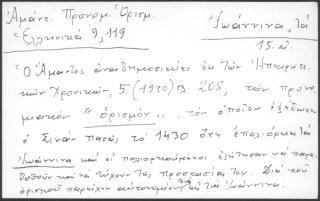 Ἀμάντ. Προνομ. Ὁρισμ.
Ἑλληνικά 9, 119
Ἰωάννινα, τά
15. αἰ.
Ὁ Ἄμαντος ἀναδημοσιεύει ἐκ τῶν Ἠπειρω-
τικῶν Χρονικῶν, 5 (1930) σ. 205, τόν προνο-
μιακόν "ὁρισμόν", τόν ὁποῖον ἐξέδωκεν
ὁ Σινάν πασᾶ, τό 1430 ὅτε ἐπολιόρκει τά
Ἰωάννινα καί οἱ πολιορκούμενοι ἐζήτησαν νά παρα-
δοθοῦν καί νά τύχουν τῆς προστασίας του. Διά τοῦ
ὁρισμοῦ παρεῖχεν αὐτονομίαν εἰς τά Ἰωάννινα.